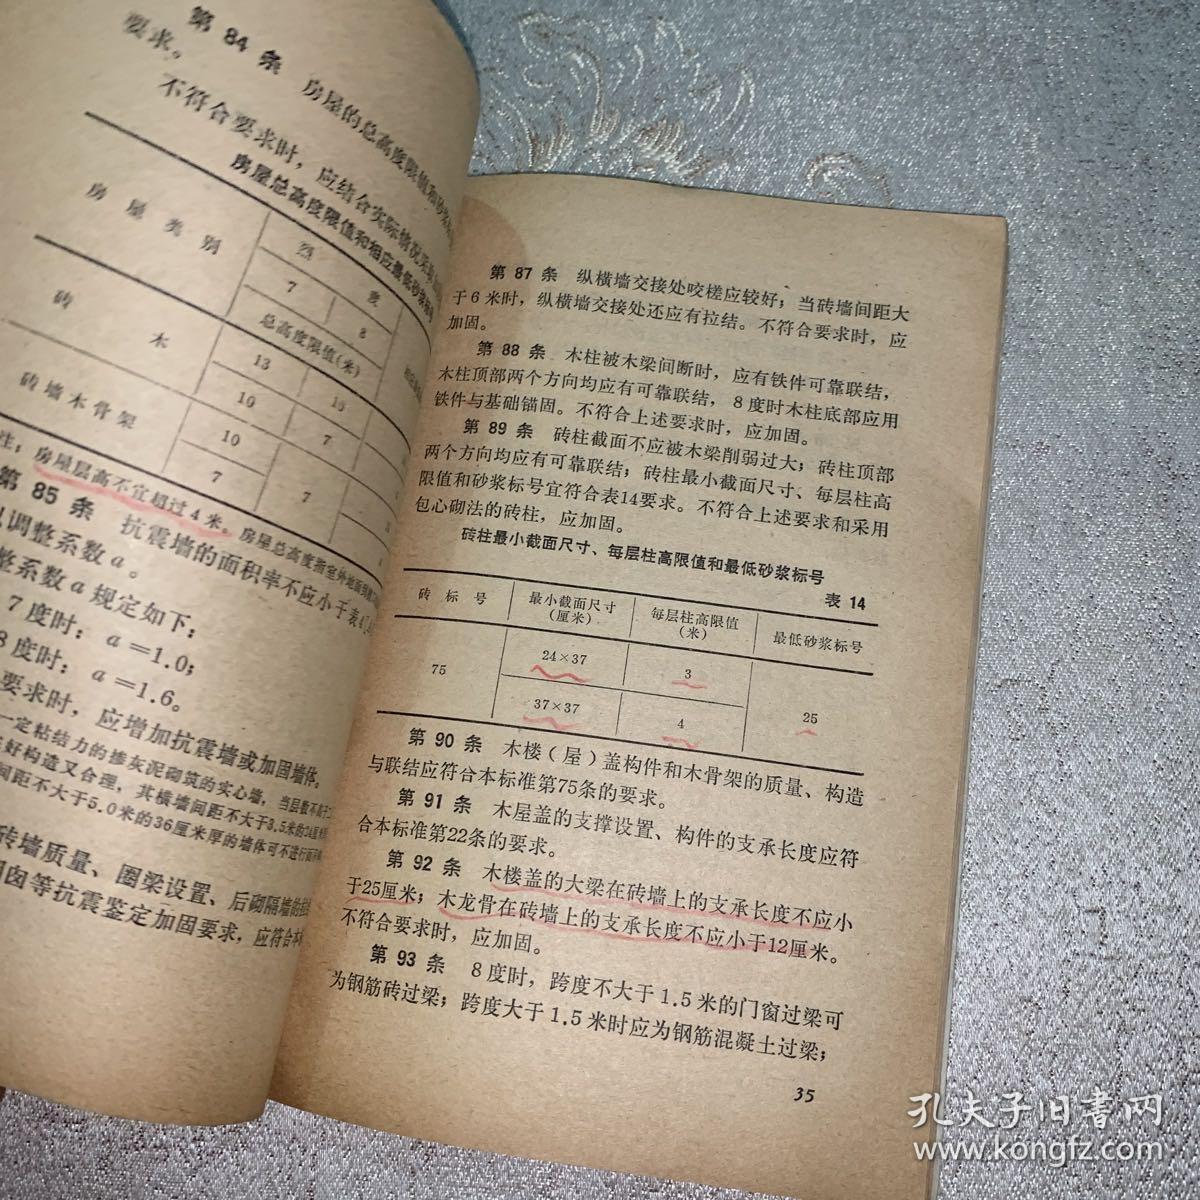 第 84 条 房屋的总高度限值和砂浆
要求。
不符合要求时，应结合实际情况采取
房屋总高度限值和相应最低砂浆标号
房屋类别
烈 度
7
8
总高度限值(米)
砖 木
13
10
10
7
砖墙木骨架
10
7
7
注：房屋层高不宜超过4米。房屋总高度指室外地面到
第 85 条 抗震墙的面积率不应小于表4
调整系数a。
整系数a规定如下：
7度时：a＝1.0；
8度时：a＝1.6。
要求时，应增加抗震墙或加固墙体。
一定粘结力的掺灰泥砌筑的实心墙，当层数不高于二
好构造又合理，其横墙间距不大于3.5米的24厘米
间距不大于5.0米的36厘米厚的墙体可不进行
砖墙质量、圈梁设置、后砌隔墙的
囱等抗震鉴定加固要求，应符合本
第 87 条 纵横墙交接处咬槎应较好；当砖墙间距大
于6米时，纵横墙交接处还应有拉结。不符合要求时，应
加固。
第 88 条 木柱被木梁间断时，应有铁件可靠联结，
木柱顶部两个方向均应有可靠联结，8度时木柱底部应用
铁件与基础锚固。不符合上述要求时，应加固。
第 89 条 砖柱截面不应被木梁削弱过大；砖柱顶部
两个方向均应有可靠联结；砖柱最小截面尺寸、每层柱高
限值和砂浆标号宜符合表14要求。不符合上述要求和采用
包心砌法的砖柱，应加固。
砖柱最小截面尺寸、每层柱高限值和最低砂浆标号
表 14
砖 标 号
最小截面尺寸
(厘米)
每层柱高限值
(米)
最低砂浆标号
75
24×37
3
25
37×37
4
第 90 条 木楼（屋）盖构件和木骨架的质量、构造
与联结应符合本标准第75条的要求。
第 91 条 木屋盖的支撑设置、构件的支承长度应符
合本标准第22条的要求。
第 92 条 木楼盖的大梁在砖墙上的支承长度不应小
于25厘米；木龙骨在砖墙上的支承长度不应小于12厘米。
不符合要求时，应加固。
第 93 条 8度时，跨度不大于1.5米的门窗过梁可
为钢筋砖过梁；跨度大于1.5米时应为钢筋混凝土过梁；
35
孔夫子旧书网
www.kongfz.com